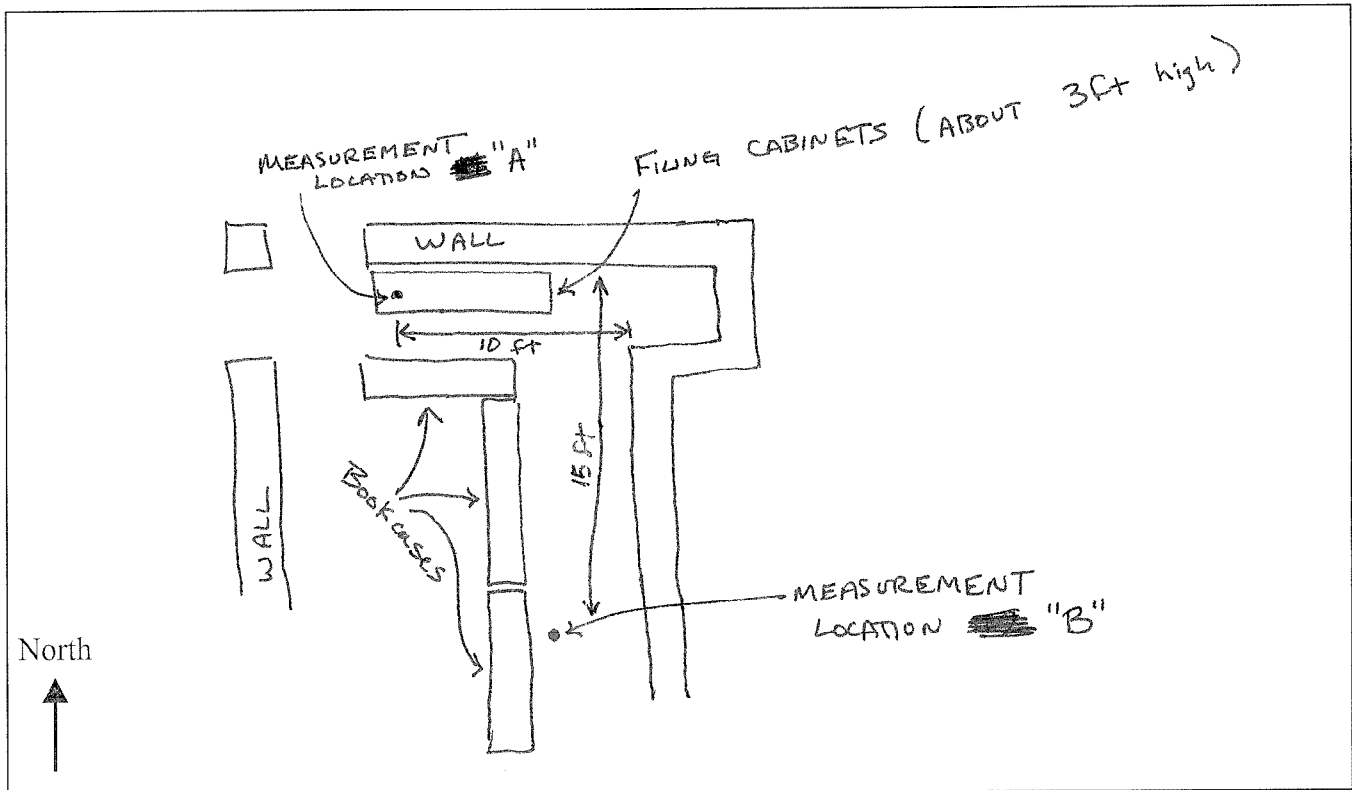 MEASUREMENT
LOCATION "A"
FILING CABINETS (ABOUT 3ft high)
WALL
10 ft
15 ft
Bookcases
WALL
MEASUREMENT
LOCATION "B"
North